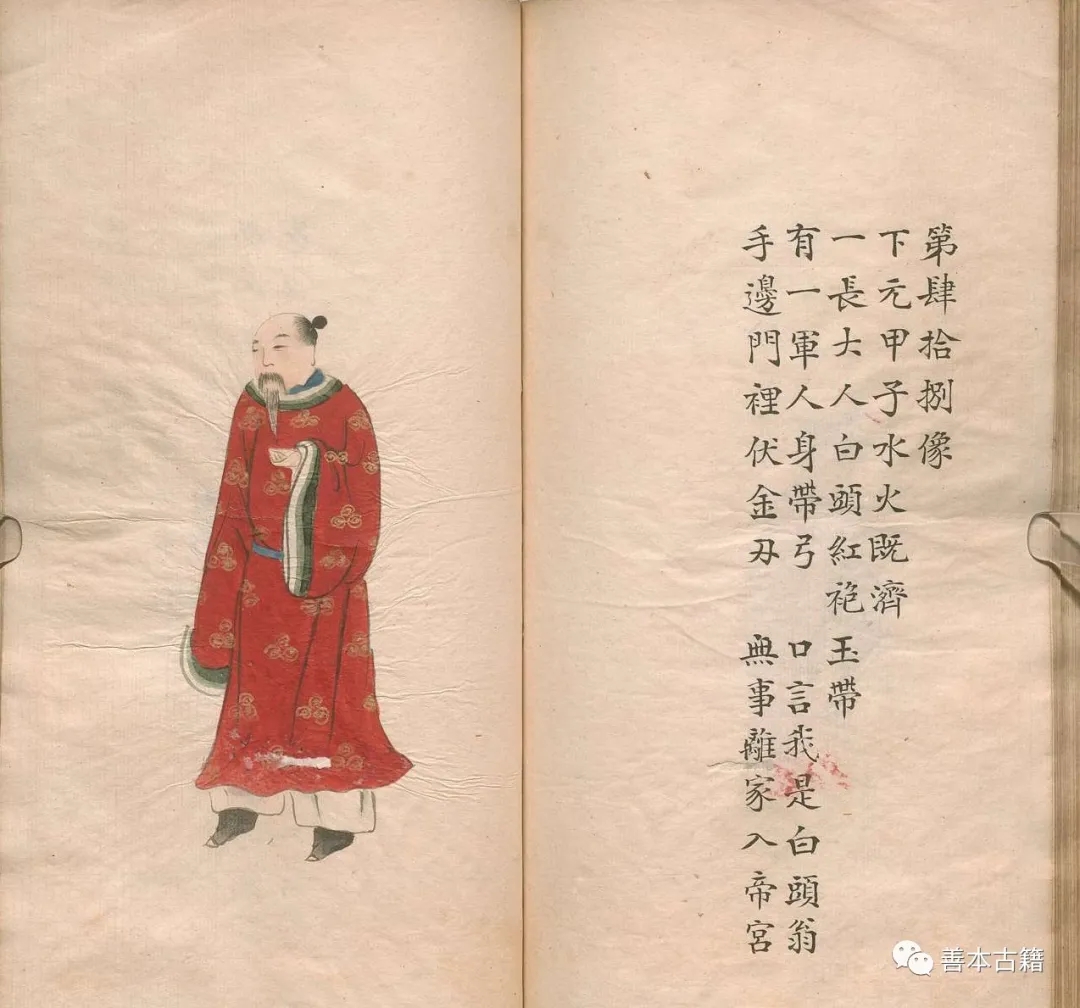 第肆拾捌像
下元甲子水火既濟
一長大人白頭紅袍玉帶
有一軍人身帶弓 口言我是白頭翁
手邊門裡伏金刄 無事離家入帝宮
善本古籍